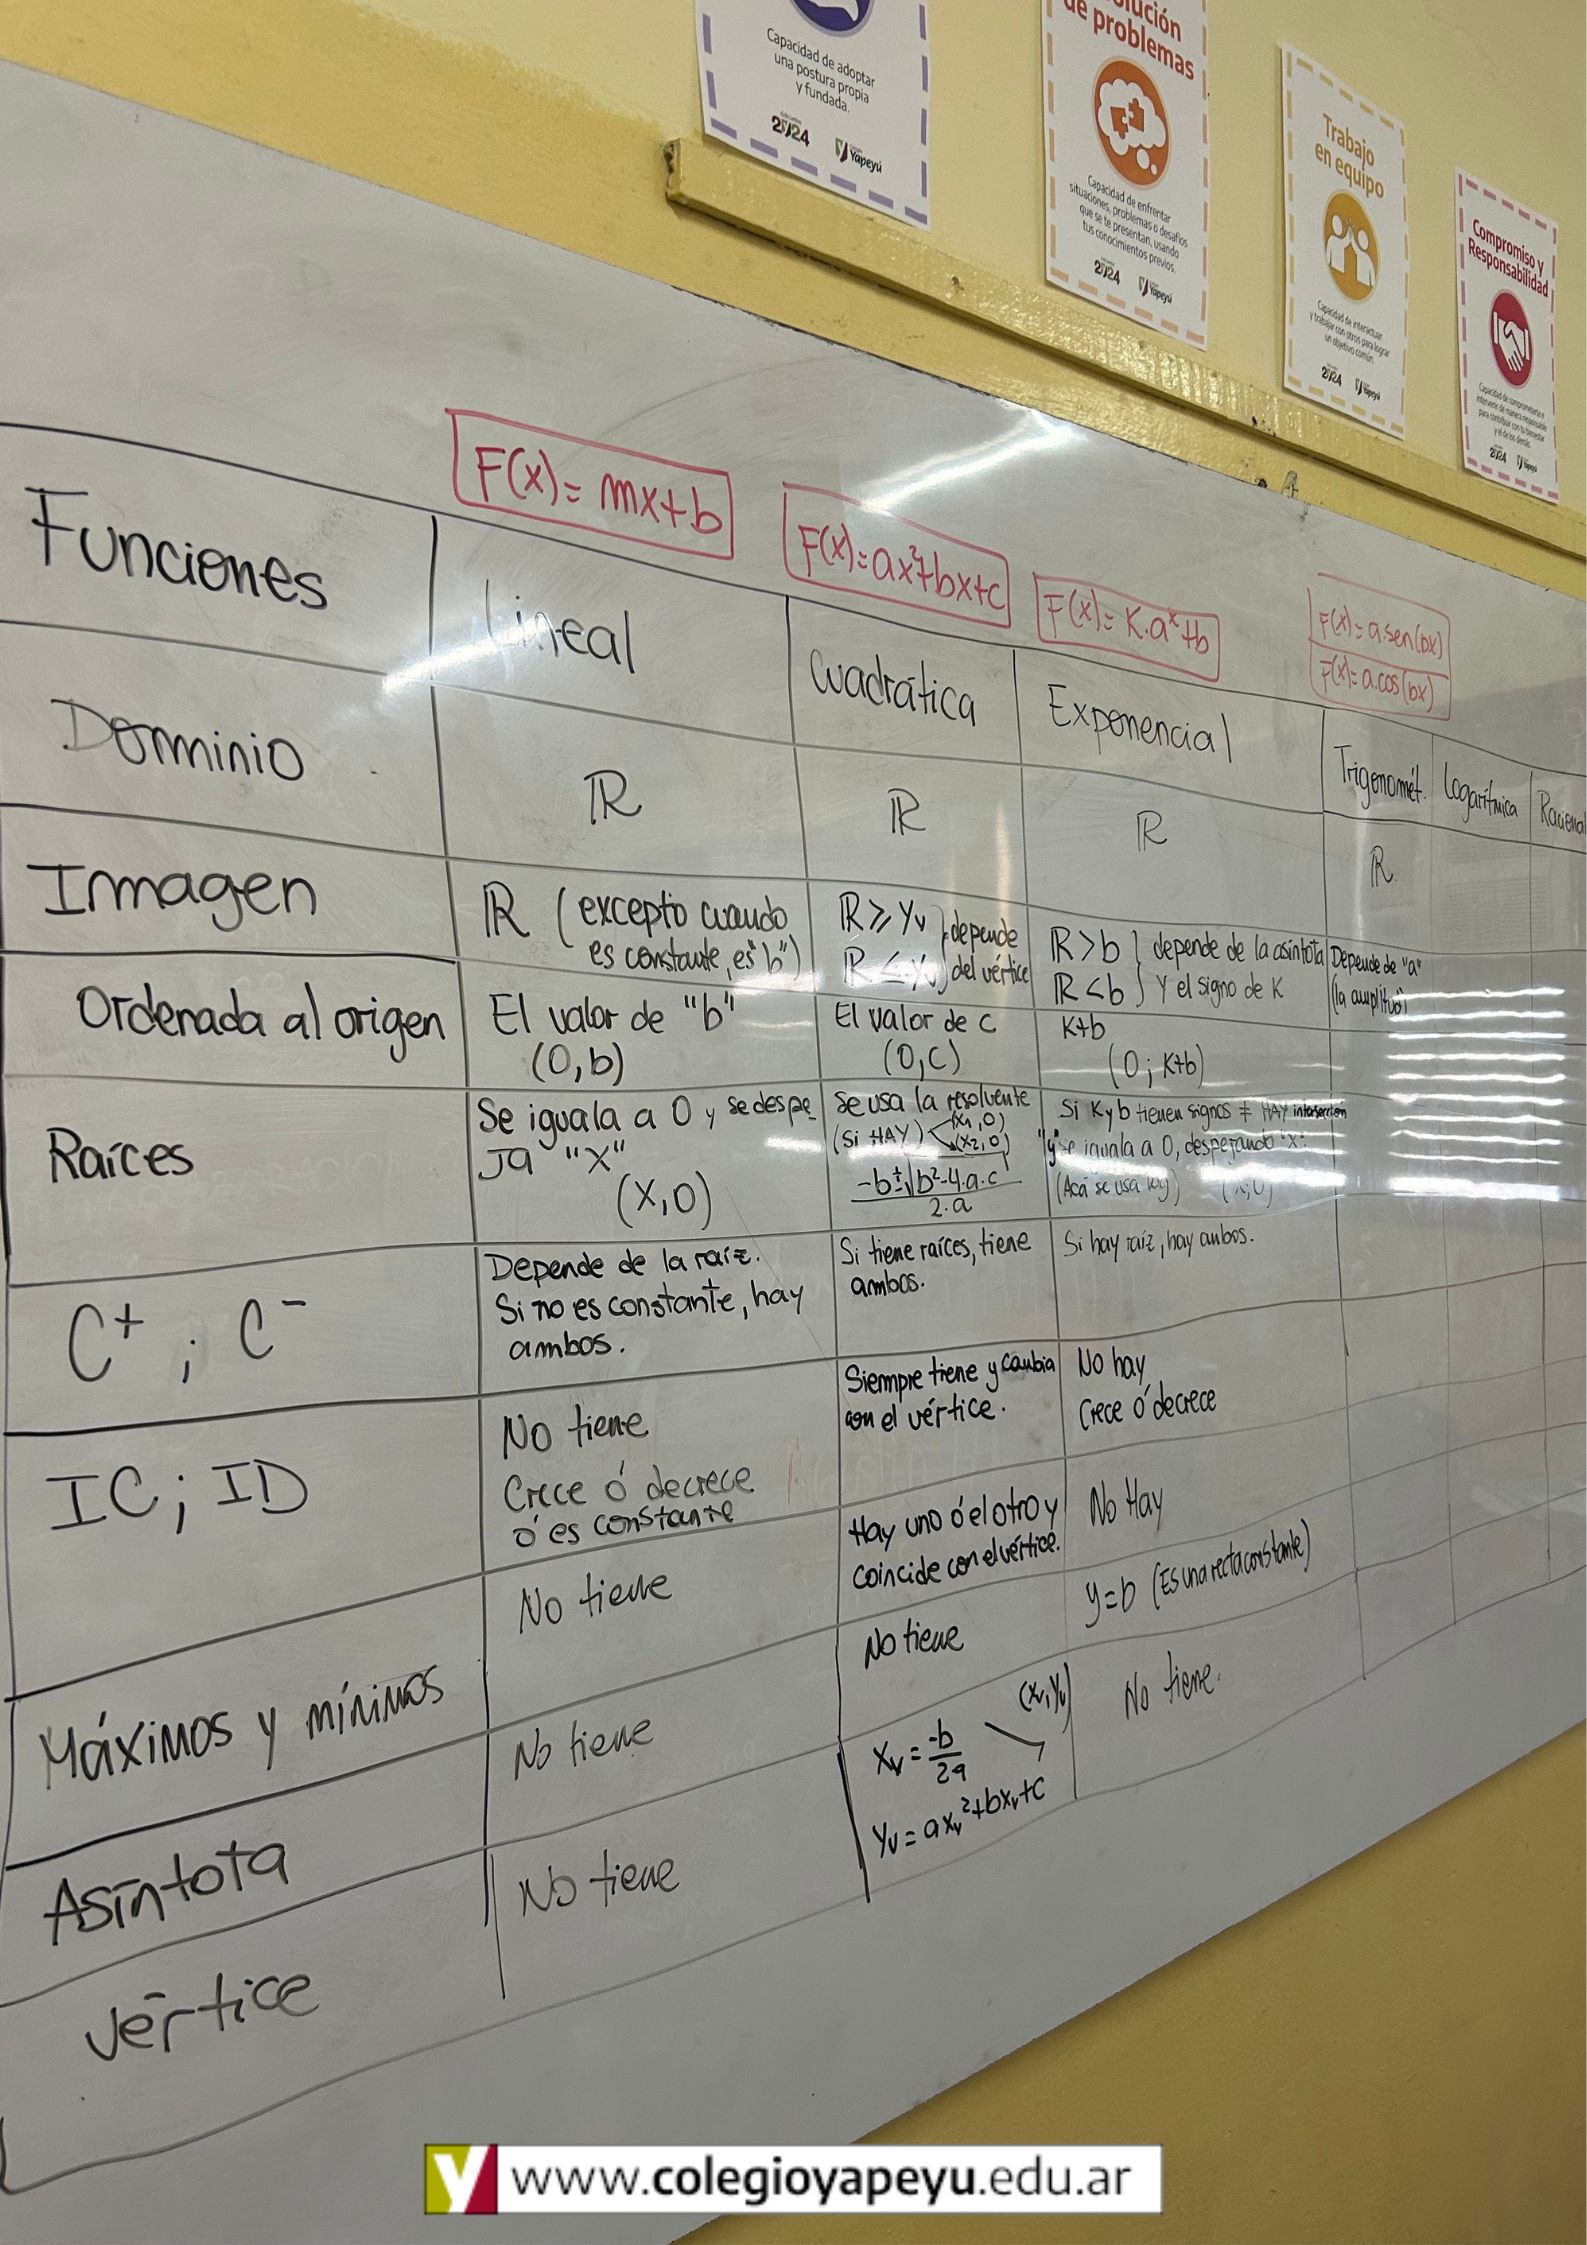 Capacidad de adoptar
una postura propia
y fundada.
2024
Yapeyú
olución
de problemas
Capacidad de enfrentar
situaciones, problemas o desafíos
que se te presentan, usando
tus conocimientos previos.
2024
Yapeyú
Trabajo
en equipo
Capacidad de interactuar
y trabajar con otros para lograr
un objetivo común.
2024
Yapeyú
Compromiso y
Responsabilidad
Capacidad de comprometerte e
intervenir de manera responsable
para contribuir con tu bienestar
y el de los demás.
2024
Yapeyú
F(x)= mx+b
F(x)=ax²+bx+c
F(x)= K.a^x+b
F(x)=a.sen(bx)
F(x)=a.cos(bx)
Funciones
Lineal
Cuadrática
Exponencial
Trigonomét.
Logarítmica
Racional
Dominio
ℝ
ℝ
ℝ
ℝ
Imagen
ℝ (excepto cuando
es constante, es "b")
ℝ ⩾ Yv
ℝ ≤ Yv
depende
del vértice
ℝ > b
ℝ < b
depende de la asíntota
y el signo de K
Depende de "a"
(la amplitud)
Ordenada al origen
El valor de "b"
(0,b)
El valor de c
(0,c)
K+b
(0; K+b)
Raíces
Se iguala a 0 y se despe
ja "X"
(X,0)
Se usa la resolvente
(Si HAY) (x1,0)
(x2,0)
-b±√b²-4.a.c
2.a
Si K y b tienen signos ≠ HAY intersección
"y" se iguala a 0, despejando "x".
(Acá se usa log) (x;0)
C+ ; C-
Depende de la raíz.
Si no es constante, hay
ambos.
Si tiene raíces, tiene
ambos.
Si hay raíz, hay ambos.
IC ; ID
No tiene
Crece ó decrece
ó es constante
Siempre tiene y cambia
con el vértice.
No hay
Crece ó decrece
Máximos y mínimos
No tiene
Hay uno ó el otro y
coincide con el vértice.
No Hay
Asíntota
No tiene
No tiene
y=b (Es una recta constante)
Vértice
No tiene
Xv = -b
2a
(Xv,Yv)
Yv = aXv²+bXv+c
No tiene.
www.colegioyapeyu.edu.ar